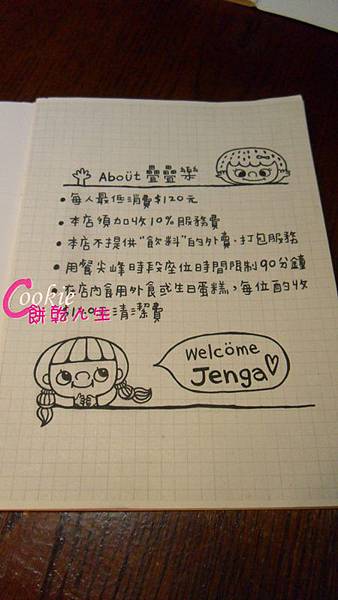 Aboüt 疊疊樂
•每人最低消費$120元
•本店須加收10%服務費
•本店不提供"飲料"的外賣.打包服務
•用餐尖峰時段座位時間限制90分鐘
•在店內食用外食或生日蛋糕,每位酌收
清潔費
Cookie
餅乾人生
Welcöme
Jenga